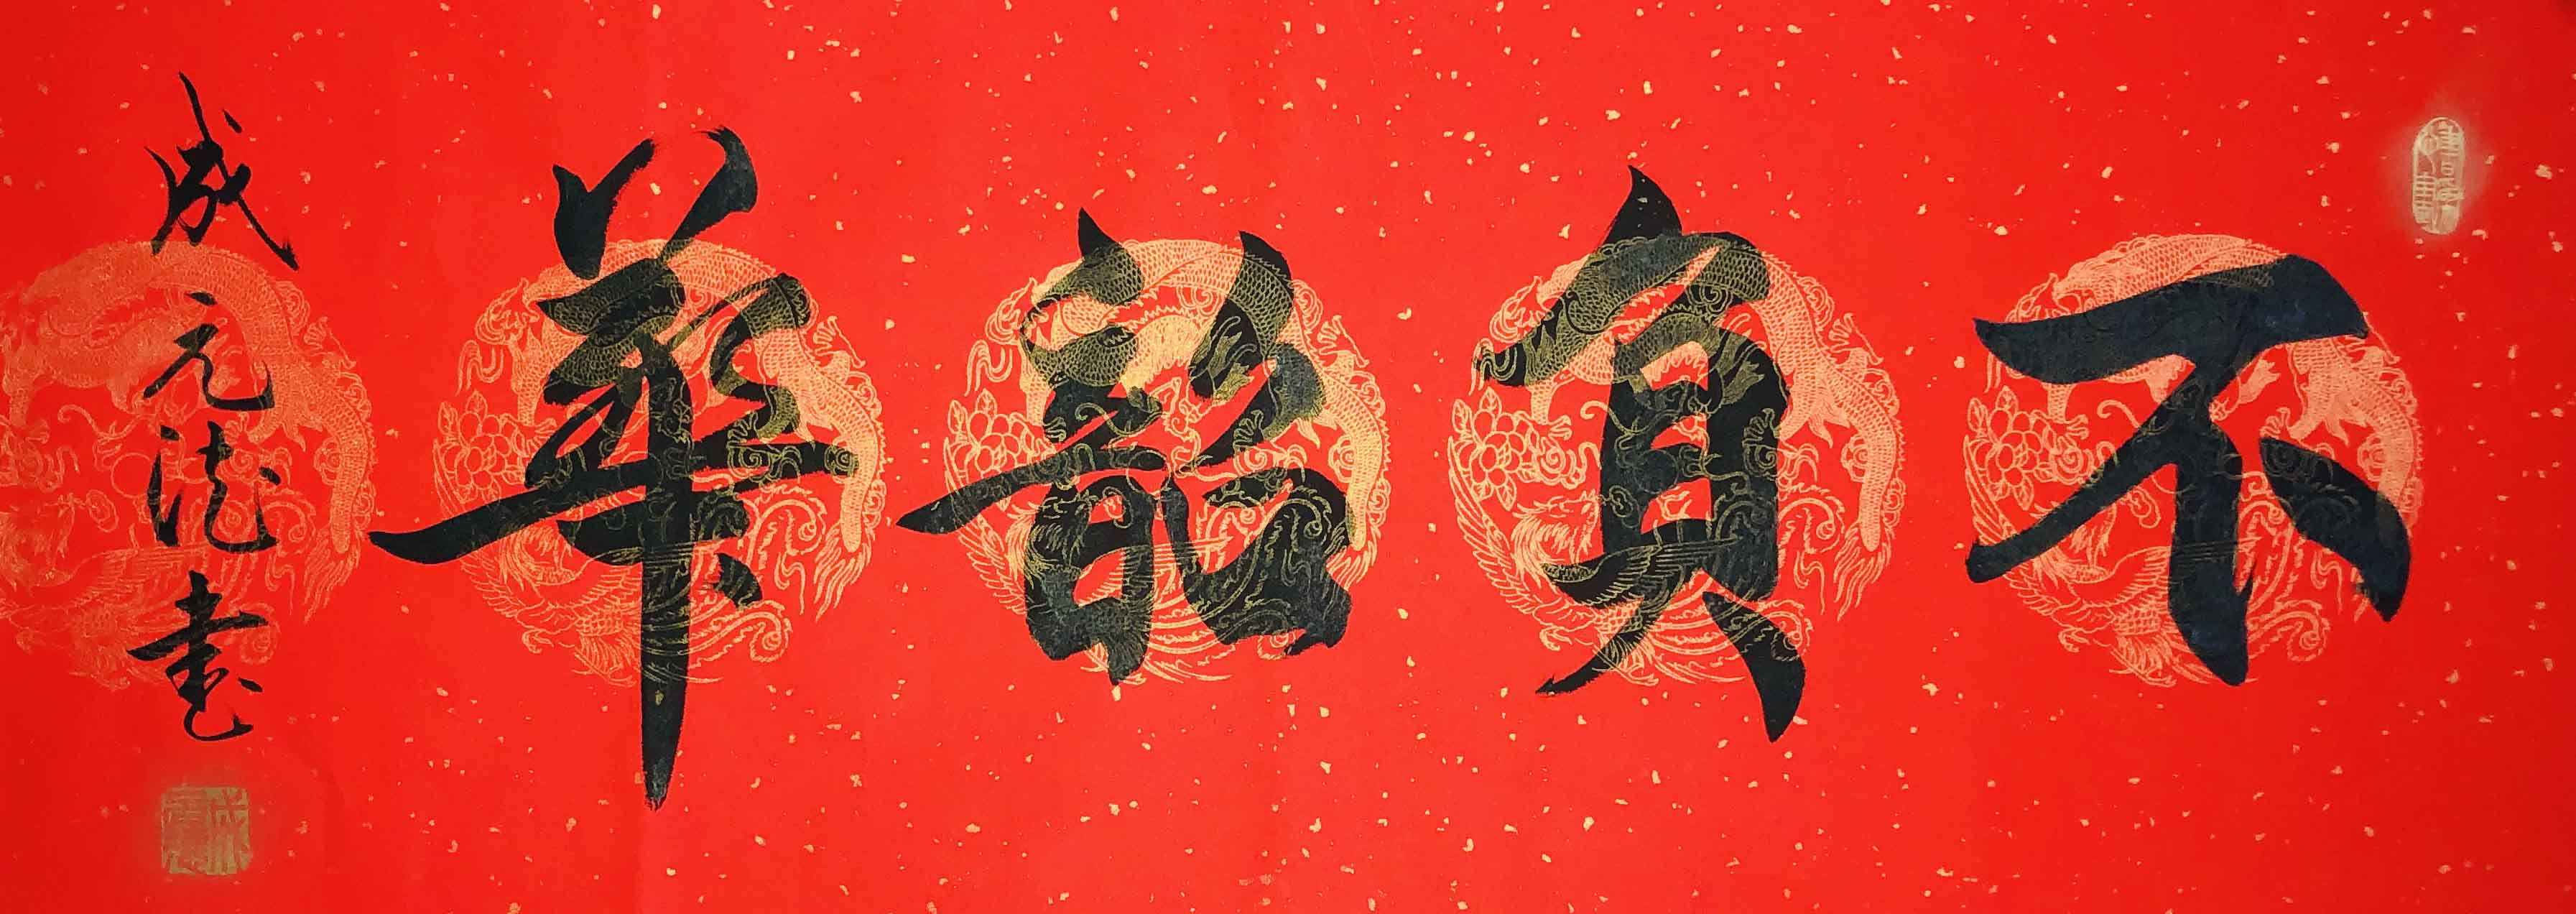 不負韶華
成元法書